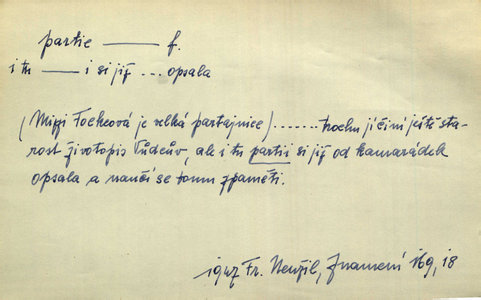 partie ——— f.
i tu —— i si již ... opsala
(Mizzi Fochcová je velká partajnice) ....... trochu jí činí ještě sta-
rost životopis Vůdcův, ale i tu partii si již od kamarádek
opsala a naučí se tomu zpaměti.
1947 Fr. Neužil, Znamení 169, 18